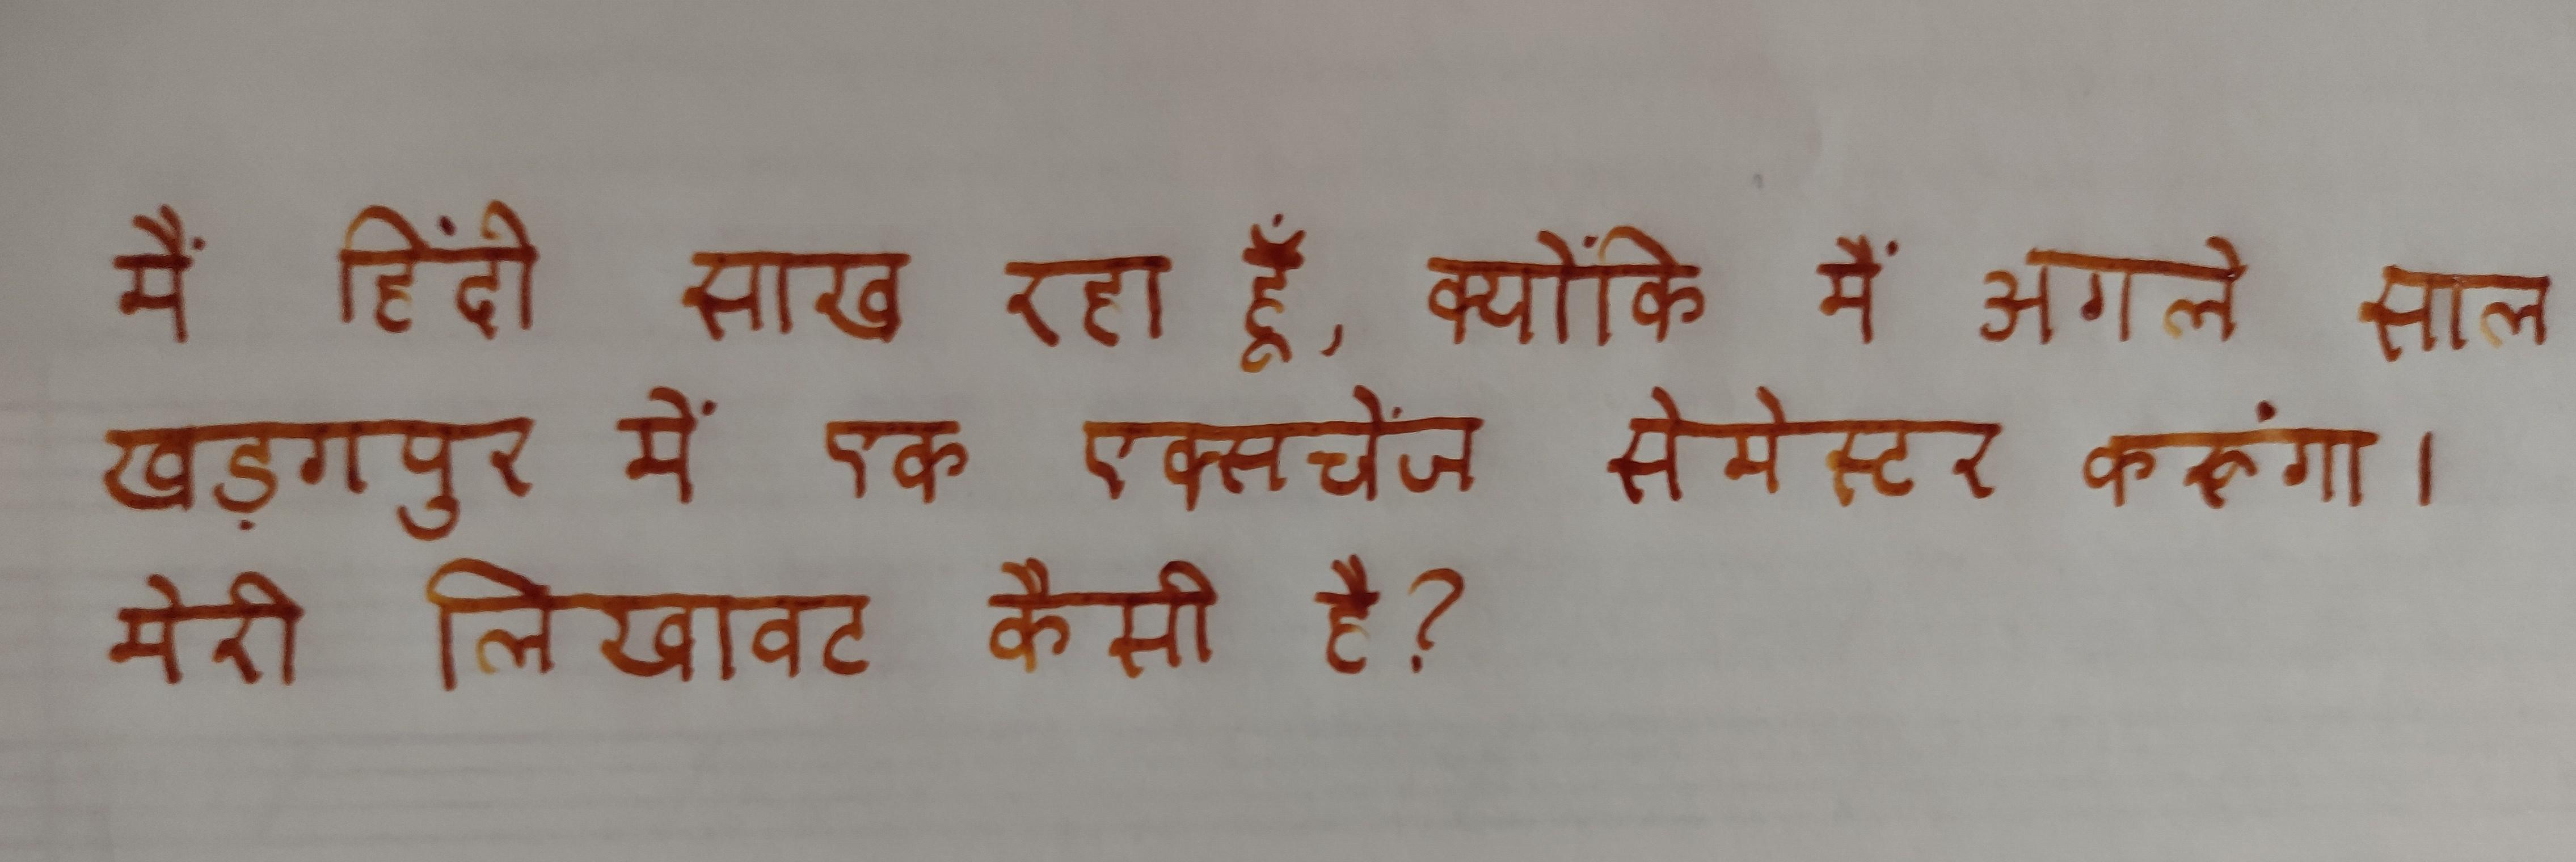 मैं हिंदी साख रहा हूँ, क्योंकि मैं अगले साल
खड़गपुर में एक एक्सचेंज सेमेस्टर करूंगा।
मेरी लिखावट कैसी है?